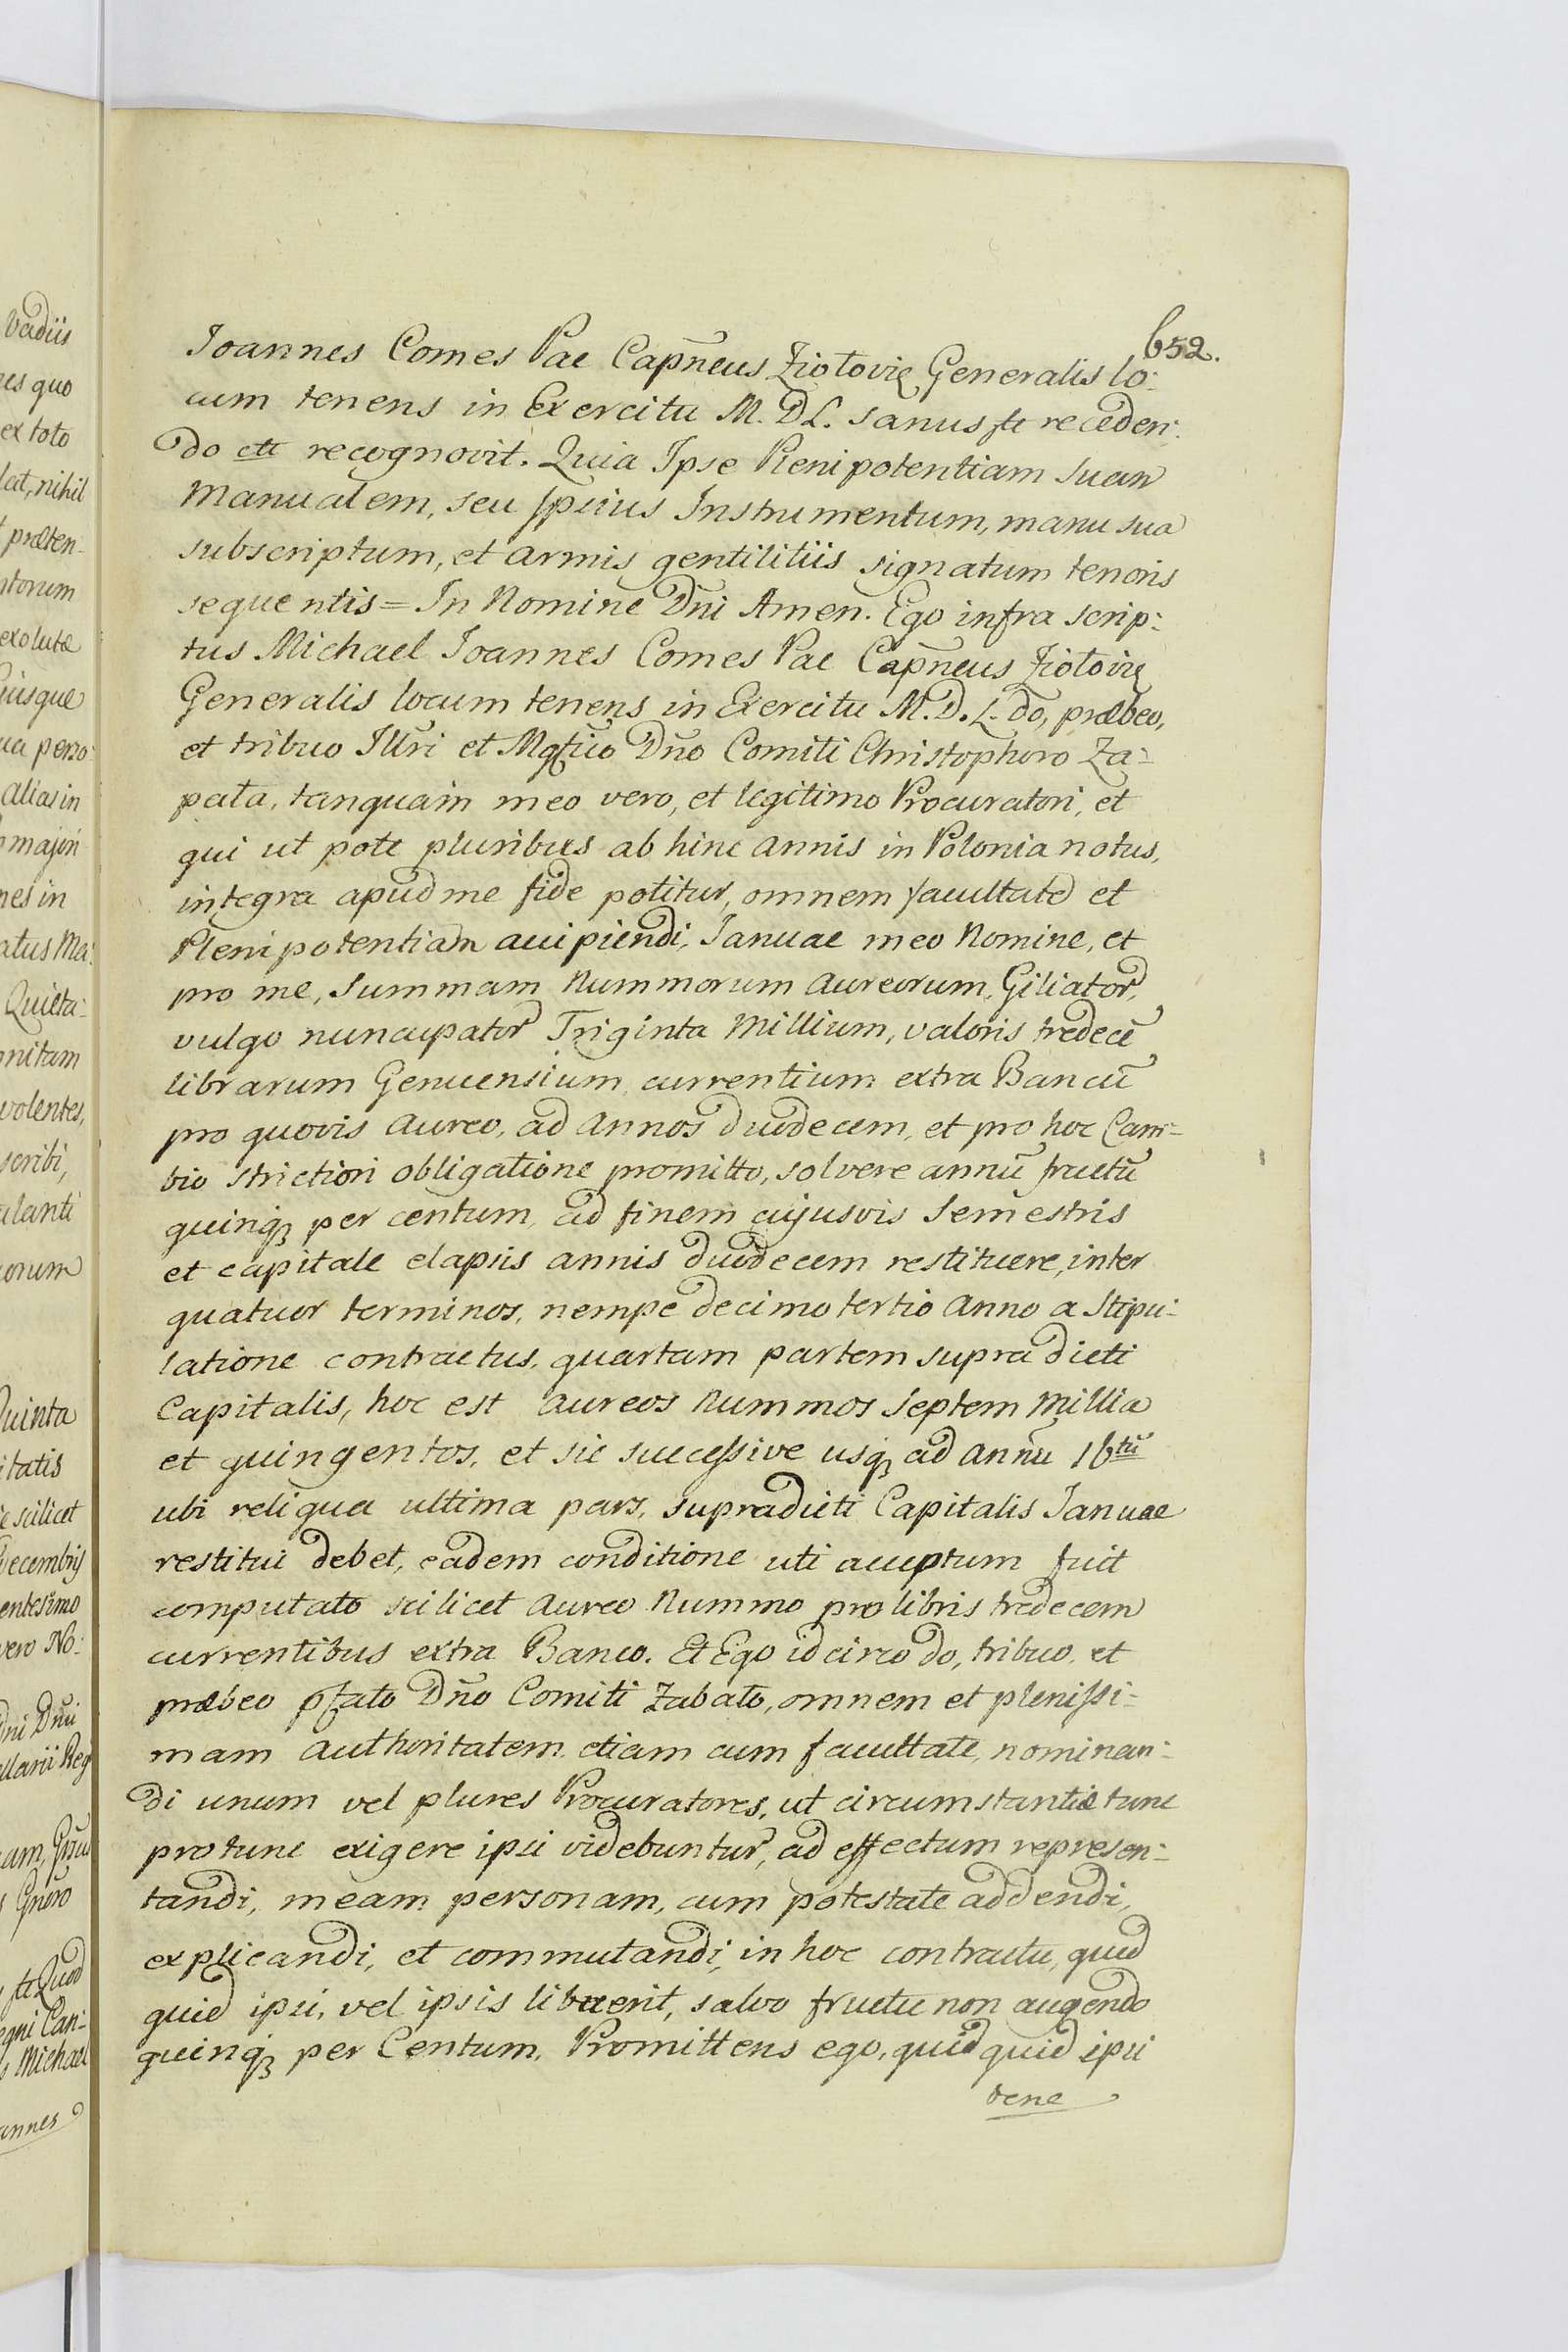 652.
Joannes Comes Pac Capñeus Ziotovię Generalis lo:
cum tenens in Exercitu M. D L. sanus etc receden:
do etc recognovit. Quia Ipse Plenipotentiam suam
Manualem, seu ipsius Instrumentum, manu sua
subscriptum, et armis gentilitiis signatum tenoris
sequentis = In Nomine Dñi Amen. Ego infra scrip:
tus Michael Joannes Comes Pac Capñeus Ziotovię
Generalis locum tenens in Exercitu M. D. L. do, præbeo,
et tribuo Illri et Mgfico Dño Comiti Christophoro Za:
pata, tanquam meo vero, et legitimo Procuratori, et
qui ut pote pluribus ab hinc annis in Polonia notus,
integra apud me fide potitur, omnem facultatē et
Plenipotentiam accipiendi, Januae meo Nomine, et
pro me, Summam Nummorum Aureorum, Giliator,
vulgo nuncupator Triginta Millium, valoris tredecē
librarum Genuensium, currentium extra Bancū
pro quovis Aureo, ad Annos duodecem, et pro hoc Cam-
bio strictiori obligatione promitto, solvere annū fructū
quinq3 per centum, ad finem cujusvis Semestris
et capitale elapsis annis duodecem restituere, inter
quatuor terminos, nempe decimo tertio Anno a Stipu:
latione contractus, quartam partem supra dicti
Capitalis, hoc est Aureos Nummos Septem Millia
et quingentos, et sic successive usq3 ad Annū 16tū
ubi reliqua ultima pars, supradicti Capitalis Januae
restitui debet, eadem conditione uti acceptum fuit
computato scilicet Aureo Nummo pro libris tredecem
currentibus extra Banco. Et Ego idcirco do, tribuo, et
præbeo pfato Dño Comiti Zabato, omnem et plenissi-
mam Authoritatem etiam cum facultate, nominan:
di unum vel plures Procuratores, ut circumstantiæ tunc
protunc exigere ipsi videbuntur, ad effectum represen:
tandi, meam personam, cum potestate addendi,
explicandi, et commutandi, in hoc contractu, quid
quid ipsi, vel ipsis libuerit, salvo fructu non augendo
quinq3 per Centum, Promittens ego, quid quid ipsi
bene
Vadiis
res quo
ex toto
nihil
præten-
ntorum
exolutæ
perso:
alias in
majori
nes in
atus Ma:
Quieta:
nitam
volentes,
scribi,
ulanti
orum
Quinta
itatis
scilicet
Decembris
entesimo
vero No:
Dñi
Reg
am,
Quod
egni Can:
Michael
annes